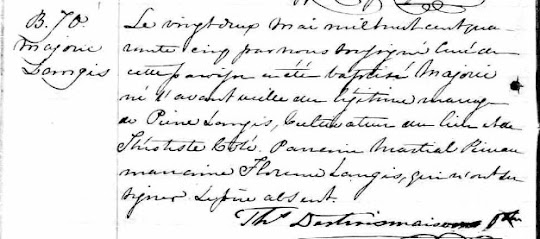 B. 70.
Majorie
Langis
Le vingt deux mai mil huit cent qua-
rante cinq par nous soussigné Curé de
cette paroisse a été baptisé Majorie
né l'avant veille du légitime mariage
de Pierre Langis, Cultivateur du lieu et de
Théotiste Coté. Parrain Martial Rioux
marraine Florence Langis, qui n'ont su
signer Le père absent.
Ths. Destroismaisons Ptre